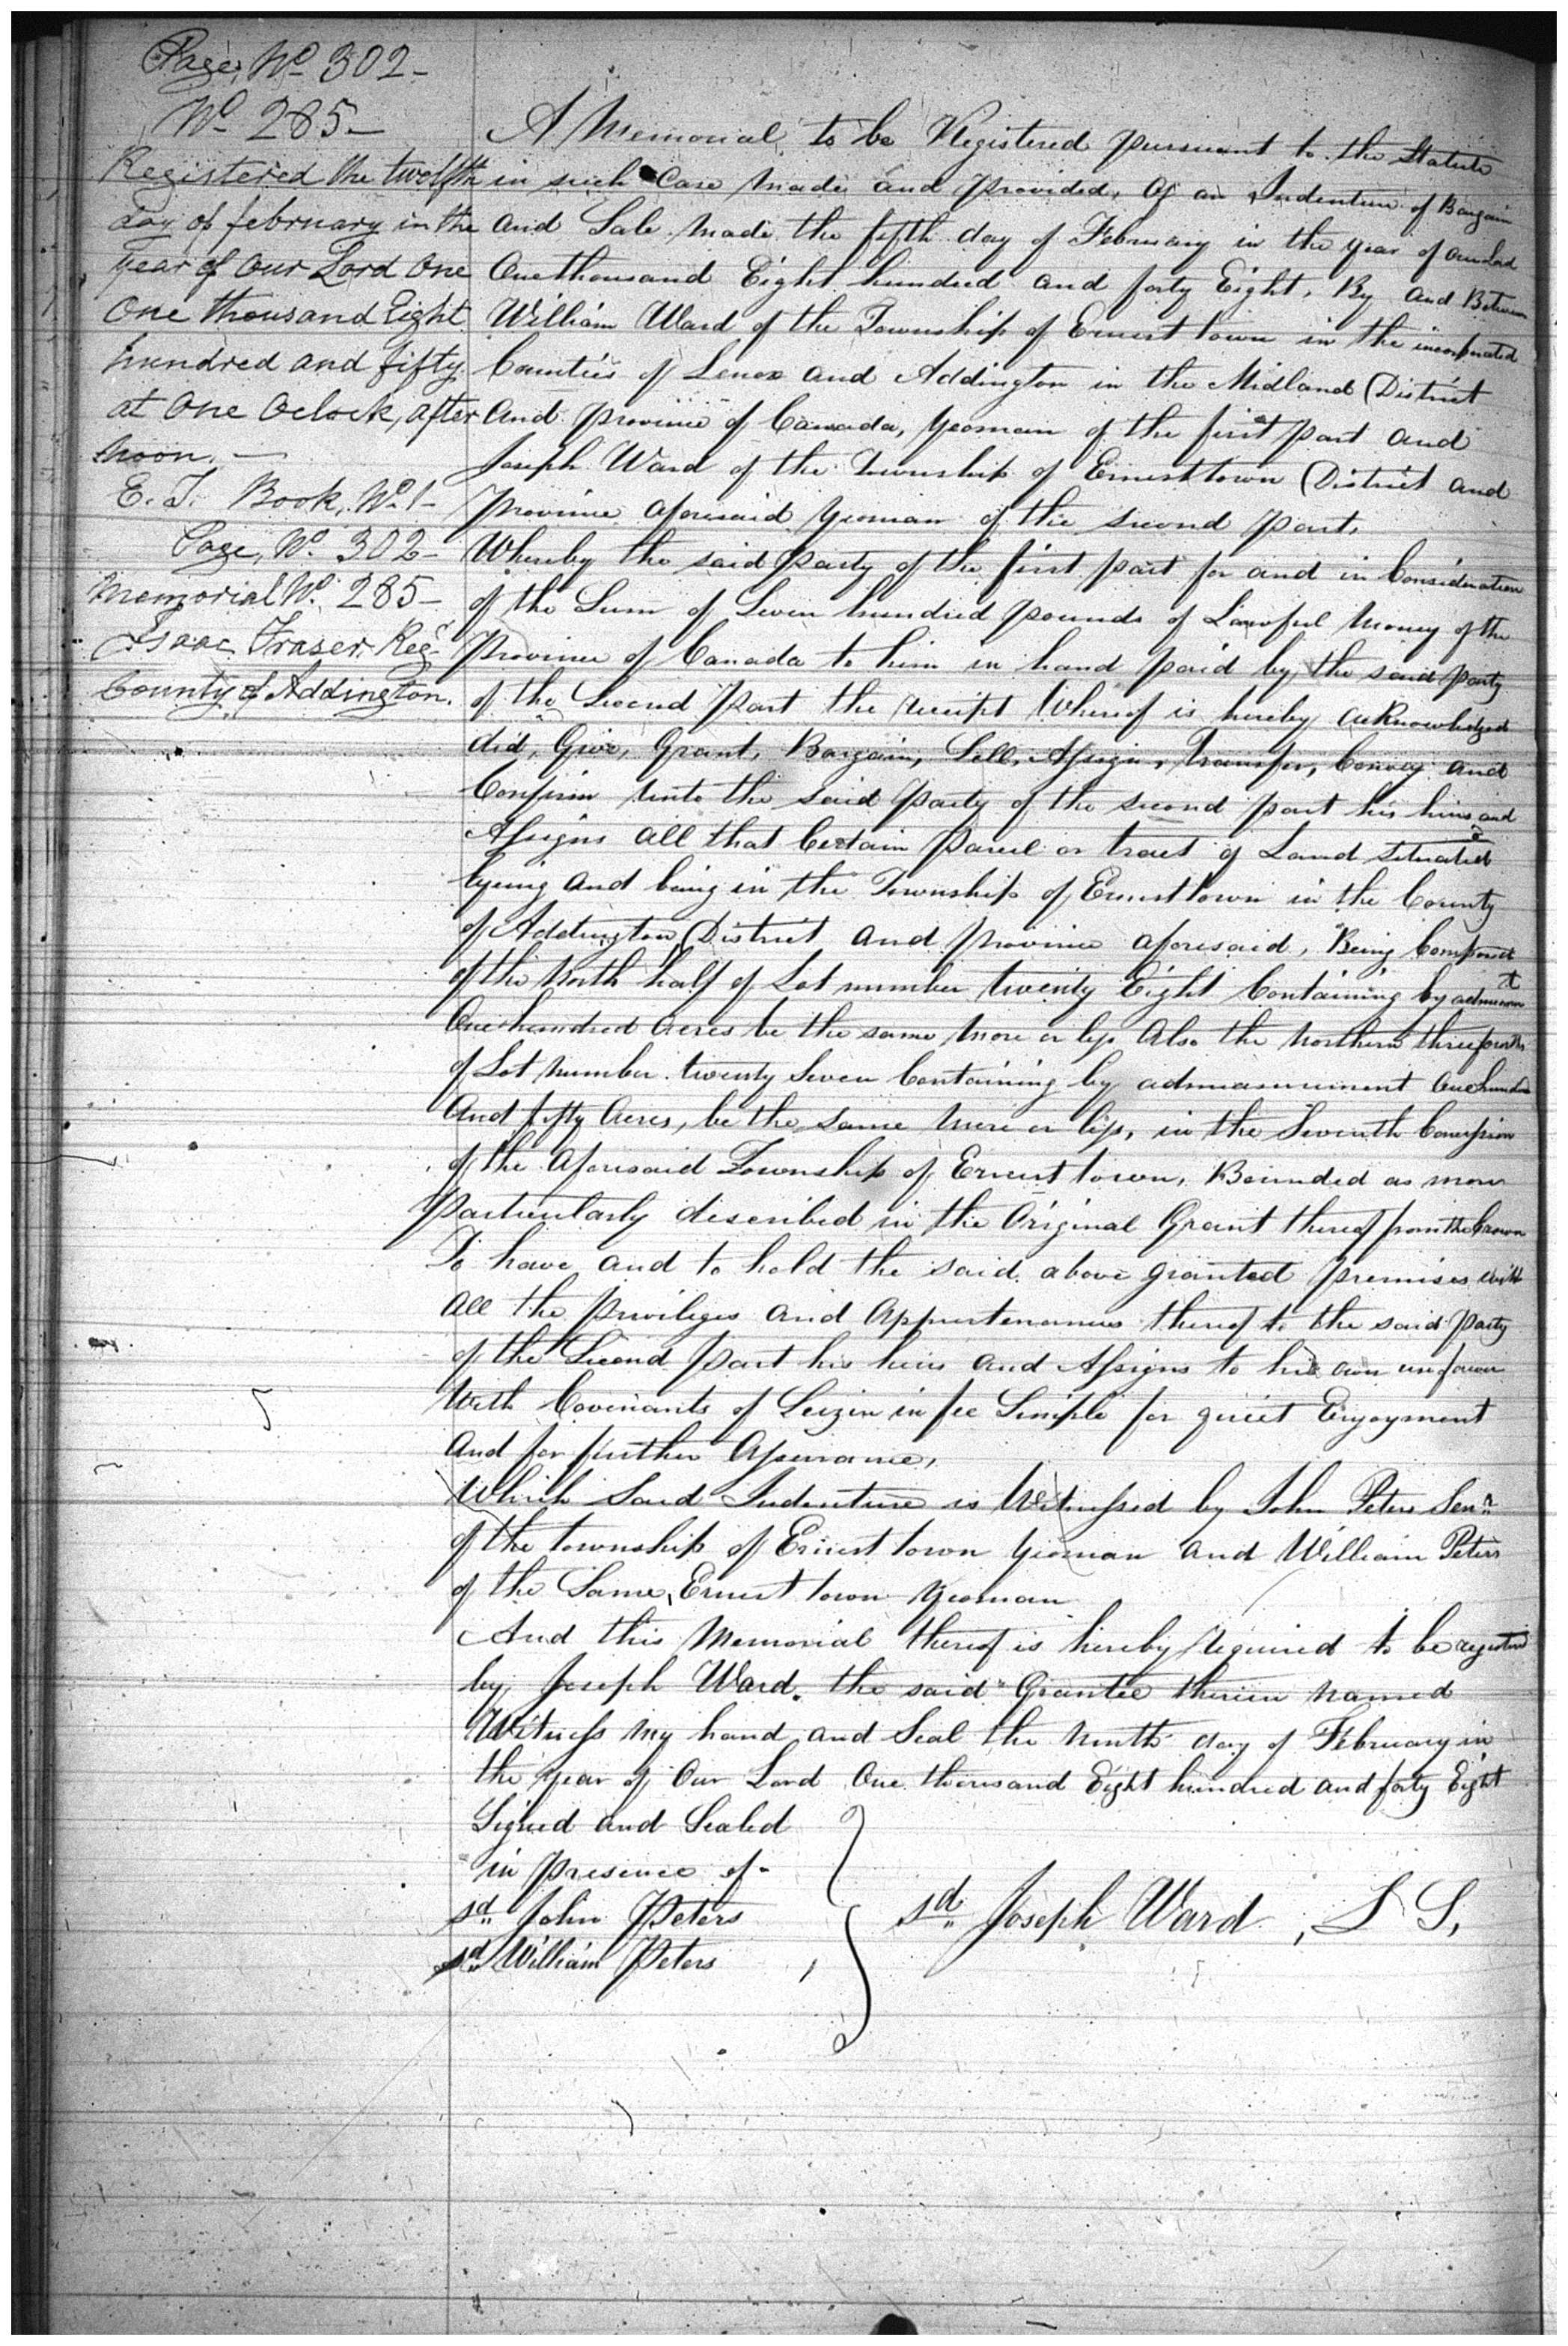 Page, No 302-
No 285-
Registered the twelfth
day of february in the
year of Our Lord One
One thousand Eight
hundred and fifty
at One Oclock, after
noon. -
E. T. Book, No 1-
Page, No. 302-
Memorial No. 285-
Isaac Fraser. Regr
County of Addington.
A Memorial, to be Registered pursuant to the Statute
in such Case made and provided, of an Indenture of Bargain
and Sale made the fifth day of February in the year of our Lord
One thousand Eight hundred and forty Eight, By and Between
William Ward of the Township of Ernest town in the incorporated
Counties of Lenox and Addington in the Midland District
and province of Canada, yeoman of the first part and
Joseph Ward of the Township of Ernesttown District and
province aforesaid yeoman of the second part,
Whereby the said party of the first part for and in Consideration
of the Sum of Seven hundred pounds of Lawful money of the
province of Canada to him in hand paid by the said party
of the Second part the receipt Whereof is hereby acknowledged
did, Give, Grant, Bargain, Sell, Assign, Transfer, Convey and
Confirm unto the said party of the second part his heirs and
Assigns all that Certain parcel or tract of Land situated
lyeing and being in the Township of Ernesttown in the County
of Addington, District and province aforesaid, Being Composed
of the North half of Lot number twenty Eight Containing by
One hundred acres be the same more or less Also the Northern three fourths
of Lot number twenty Seven Containing by admeasurement One hundred
And fifty Acres, be the same more or less, in the Seventh Concession
of the Aforesaid Township of Ernest town, Bounded as more
particularly described in the Original Grant thereof from the Crown
To have and to hold the said above granted premises with
all the privileges and Appurtenances thereof to the said party
of the Second part his heirs and Assigns to his own use forever
With Covenants of Seizin in fee Simple for quiet Enjoyment
and for further Assurance,
Which Said Indenture is Witnessed by John Peters Senr
of the township of Ernest town yeoman and William Peters
of the Same, Ernest town yeoman
And this Memorial thereof is hereby required to be registered
by Joseph Ward. the said Grantee therein named
Witness my hand and Seal the Ninth day of February in
the year of Our Lord One thousand Eight hundred and forty Eight
Signed and Sealed
in presence of-
sd John Peters
sd William Peters
sd Joseph Ward, L S,